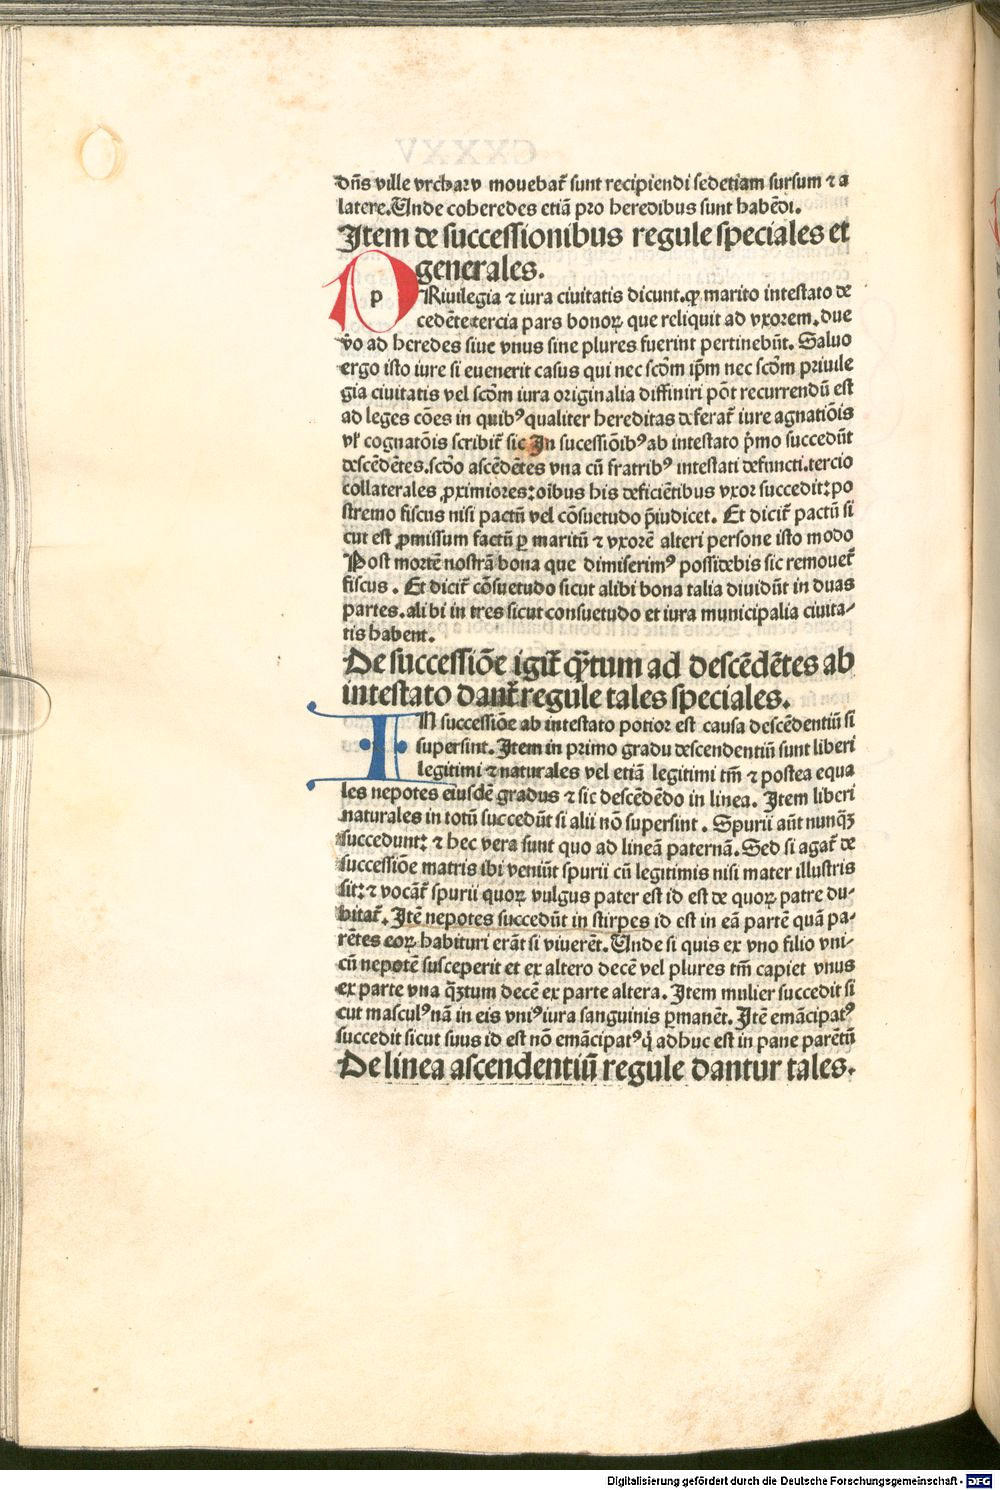 dn̄s ville vrcharv mouebat̄ sunt recipiendi sed etiam sursum ⁊ a
latere. Unde coheredes etiā pro heredibus sunt habēdi.
Item de successionibus regule speciales et
generales.
p Riuilegia ⁊ iura ciuitatis dicunt. ꝙ marito intestato de
cedēte tercia pars bonoꝝ que reliquit ad vxorem. due
v̄o ad heredes siue vnus sine plures fuerint pertinebūt. Saluo
ergo isto iure si euenerit casus qui nec scōm ip̄m nec scōm priuile
gia ciuitatis vel scōm iura originalia diffiniri pōt recurrendū est
ad leges cōes in quibꝰ qualiter hereditas deferat̄ iure agnatiōis
vl̓ cognatōis scribit̄ sic In sucessiōibꝰ ab intestato p̄mo succedūt
descēdētes. scdōo ascēdētes vna cū fratribꝰ intestati defuncti. tercio
collaterales ꝓximiores: oībus his deficiētibus vxor succedit: po
stremo fiscus nisi pactū vel cōsuetudo p̄iudicet. Et dicit̄ pactū si
cut est ꝓmissum factū ꝑ maritū ⁊ vxorē alteri persone isto modo
Post mortē nostrā bona que dimiserimꝰ possidebis sic remouet̄
fiscus. Et dicit̄ cōsuetudo sicut alibi bona talia diuidūt in duas
partes. alibi in tres sicut consuetudo et iura municipalia ciuita-
tis habent.
De successiōe igit̄ q̄tum ad descēdētes ab
intestato dant̄ regule tales speciales.
IN successiōe ab intestato potior est causa descēdentiū si
supersint. Item in primo gradu descendentiū sunt liberi
legitimi ⁊ naturales vel etiā legitimi tm̄ ⁊ postea equa
les nepotes eiusdē gradus ⁊ sic descēdēdo in linea. Item liberi
naturales in totū succedūt si alii nō supersint. Spurii aūt nunqꝫ
succedunt: ⁊ hec vera sunt quo ad lineā paternā. Sed si agat̄ de
successiōe matris ibi veniūt spurii cū legitimis nisi mater illustris
sit: ⁊ vocāt̄ spurii quoꝝ vulgus pater est id est de quoꝝ patre du-
bitat̄. Itē nepotes succedūt in stirpes id est in eā partē quā pa-
rētes eoꝝ habituri erāt si viuerēt. Unde si quis ex vno filio vni-
cū nepotē susceperit et ex altero decē vel plures tm̄ capiet vnus
ex parte vna qꝫtum decē ex parte altera. Item mulier succedit si
cut masculꝰ nā in eis vniꝰ iura sanguinis ꝑmanēt. Itē emācipatꝰ
succedit sicut suus id est nō emācipatꝰ q̇ adhuc est in pane parētū
De linea ascendentiū regule dantur tales.
Digitalisierung gefördert durch die Deutsche Forschungsgemeinschaft - DFG